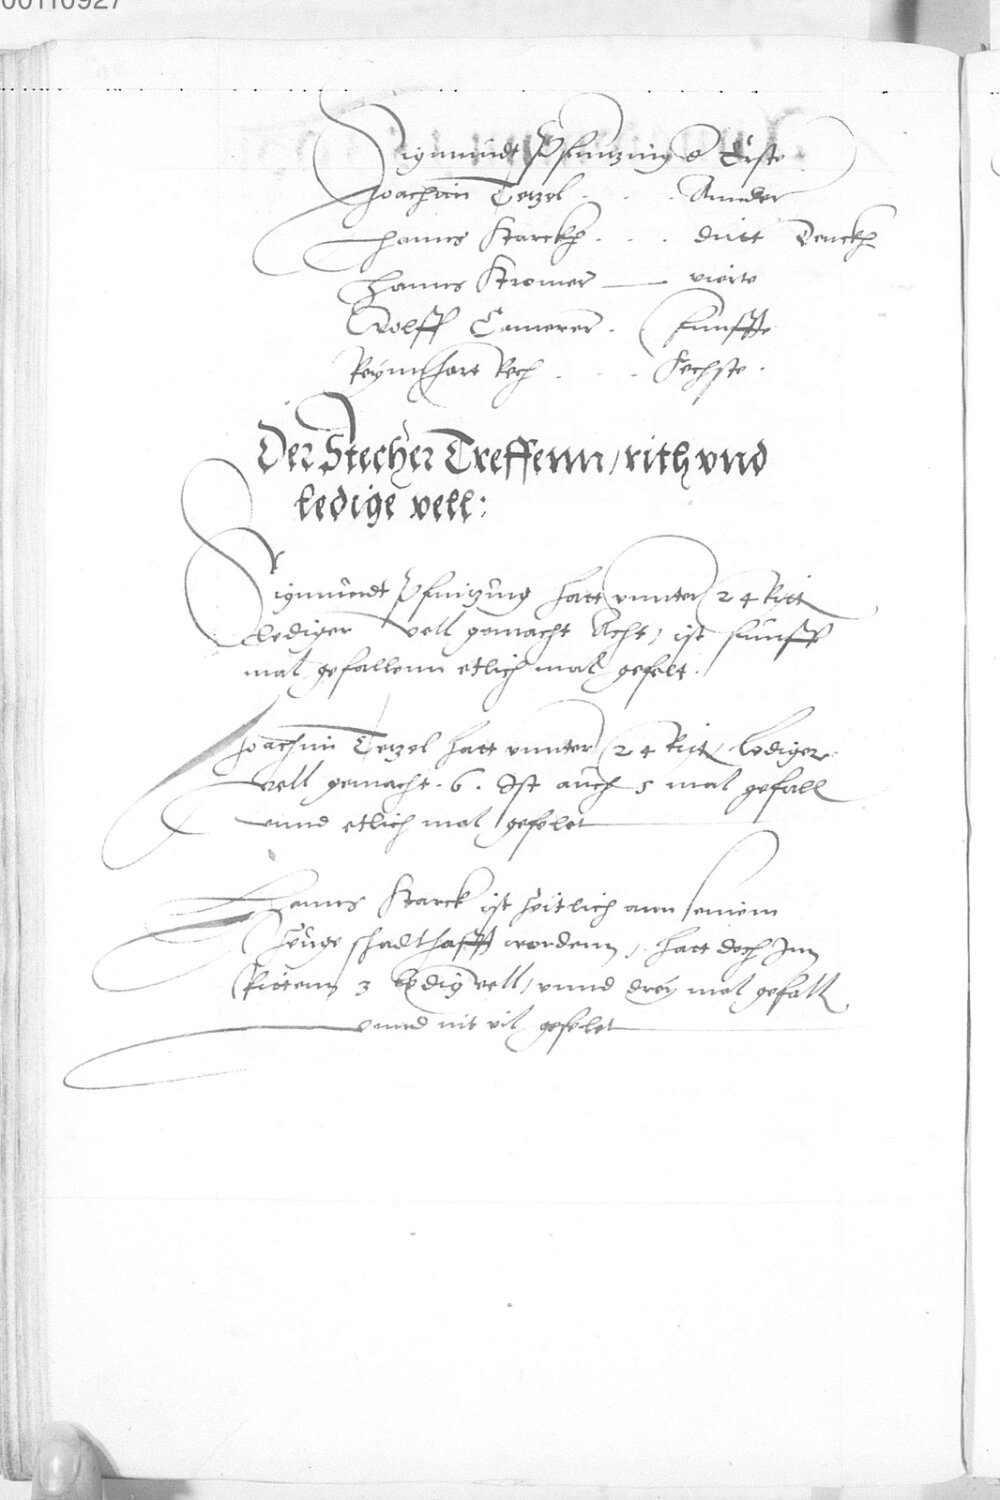 00110927
Sigmundt Pfintzing d Erste
Joachim Tetzel . . . Annder
Hanns Starckh . . . dritt Denckh
Hanns Stromer — vierte
Wolff Camerer . funffte
Reymhart Rech . . . Sechste .
Der Stecher Treffenn / rith vnd
ledige vell:
Sigmundt Pfintzing hatt vnnter 24 Ritt
Lediger vell gemacht Acht, ist funff
mal gefallenn etlich mal gefelt.
Joachim Tetzel hatt vnnter 24 Ritt, lediger
vell gemacht . 6 . Ist auch 5 mal gefall
vnnd etlich mal gefelet
Hanns Starck ist heitlich ann seinem
Zeuge schadthafft wordenn, hatt doch Inn
Rittenn 3 ledig vell, vnnd drey mal gefall
vnnd nit vil gefelet